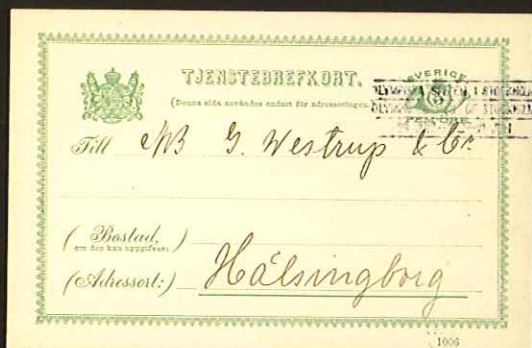 TJENSTEBREFKORT.
(Denna sida användes endast för adresseringen.)
SVERIGE
5
FEM ÖRE
Till
G. Westrup & Co
(Bostad,)
om den kan uppgifvas:
(Adressort:) Hälsingborg
1006